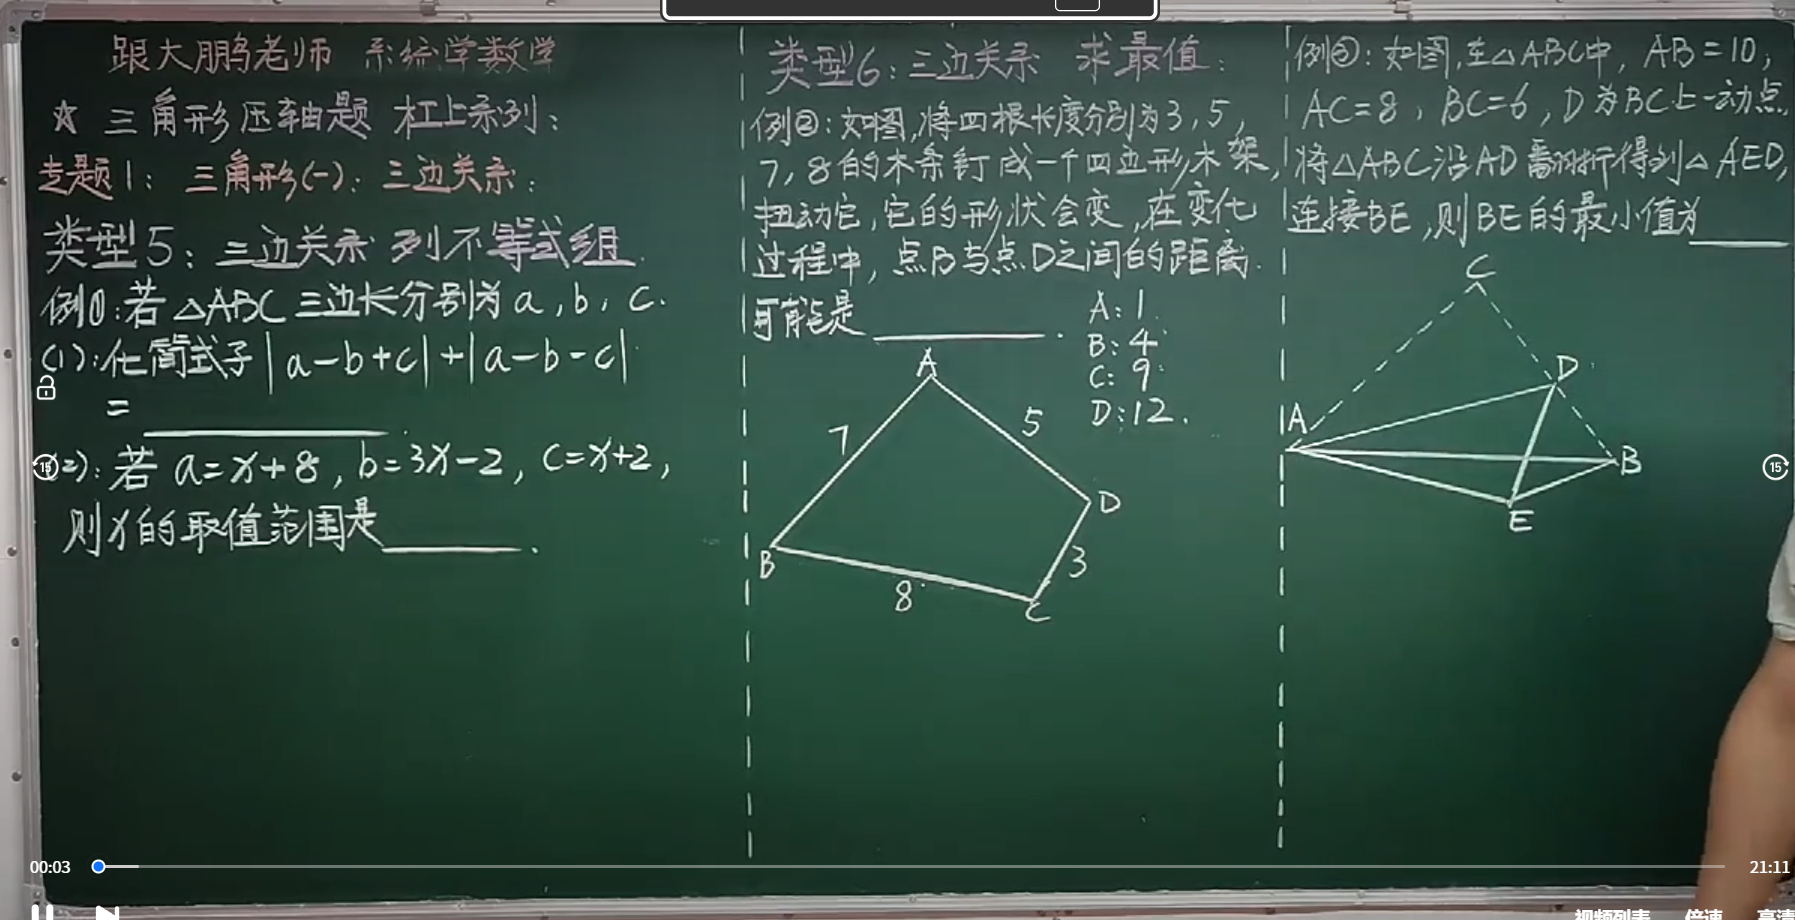 跟大鹏老师 系统学数学
☆ 三角形压轴题 杠上系列:
专题1: 三角形(一): 三边关系:
类型5: 三边关系 列不等式组.
例①:若△ABC三边长分别为a,b,c.
(1):化简式子|a-b+c|+|a-b-c|
=
(2):若a=x+8,b=3x-2,c=x+2,
则x的取值范围是_____.
类型6:三边关系 求最值:
例②:如图,将四根长度分别为3,5,
7,8的木条钉成一个四边形木架,
扭动它,它的形状会变,在变化
过程中,点B与点D之间的距离.
可能是_____.
A:1.
B:4.
C:9.
D:12.
A
7
5
D
B
8
3
C
例③:如图,在△ABC中,AB=10,
AC=8,BC=6,D为BC上一动点,
将△ABC沿AD翻折得到△AED,
连接BE,则BE的最小值为_____
C
D
A
B
E
15
15
00:03
21:11
视频列表 倍速 高清